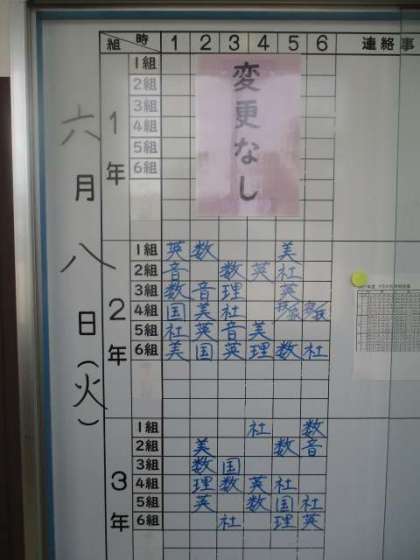 六月八日(火)
組 時 1 2 3 4 5 6 連絡事
1年
1組
2組
3組
4組
5組
6組
変更なし
2年
1組 英 数 美
2組 音 数 英 社
3組 数 音 理 英
4組 国 美 社
5組 社 英 音 美
6組 美 国 英 理 数 社
3年
1組 社 数
2組 美 数 音
3組 数 国
4組 理 数 英 社
5組 英 数 国 社
6組 社 理 英